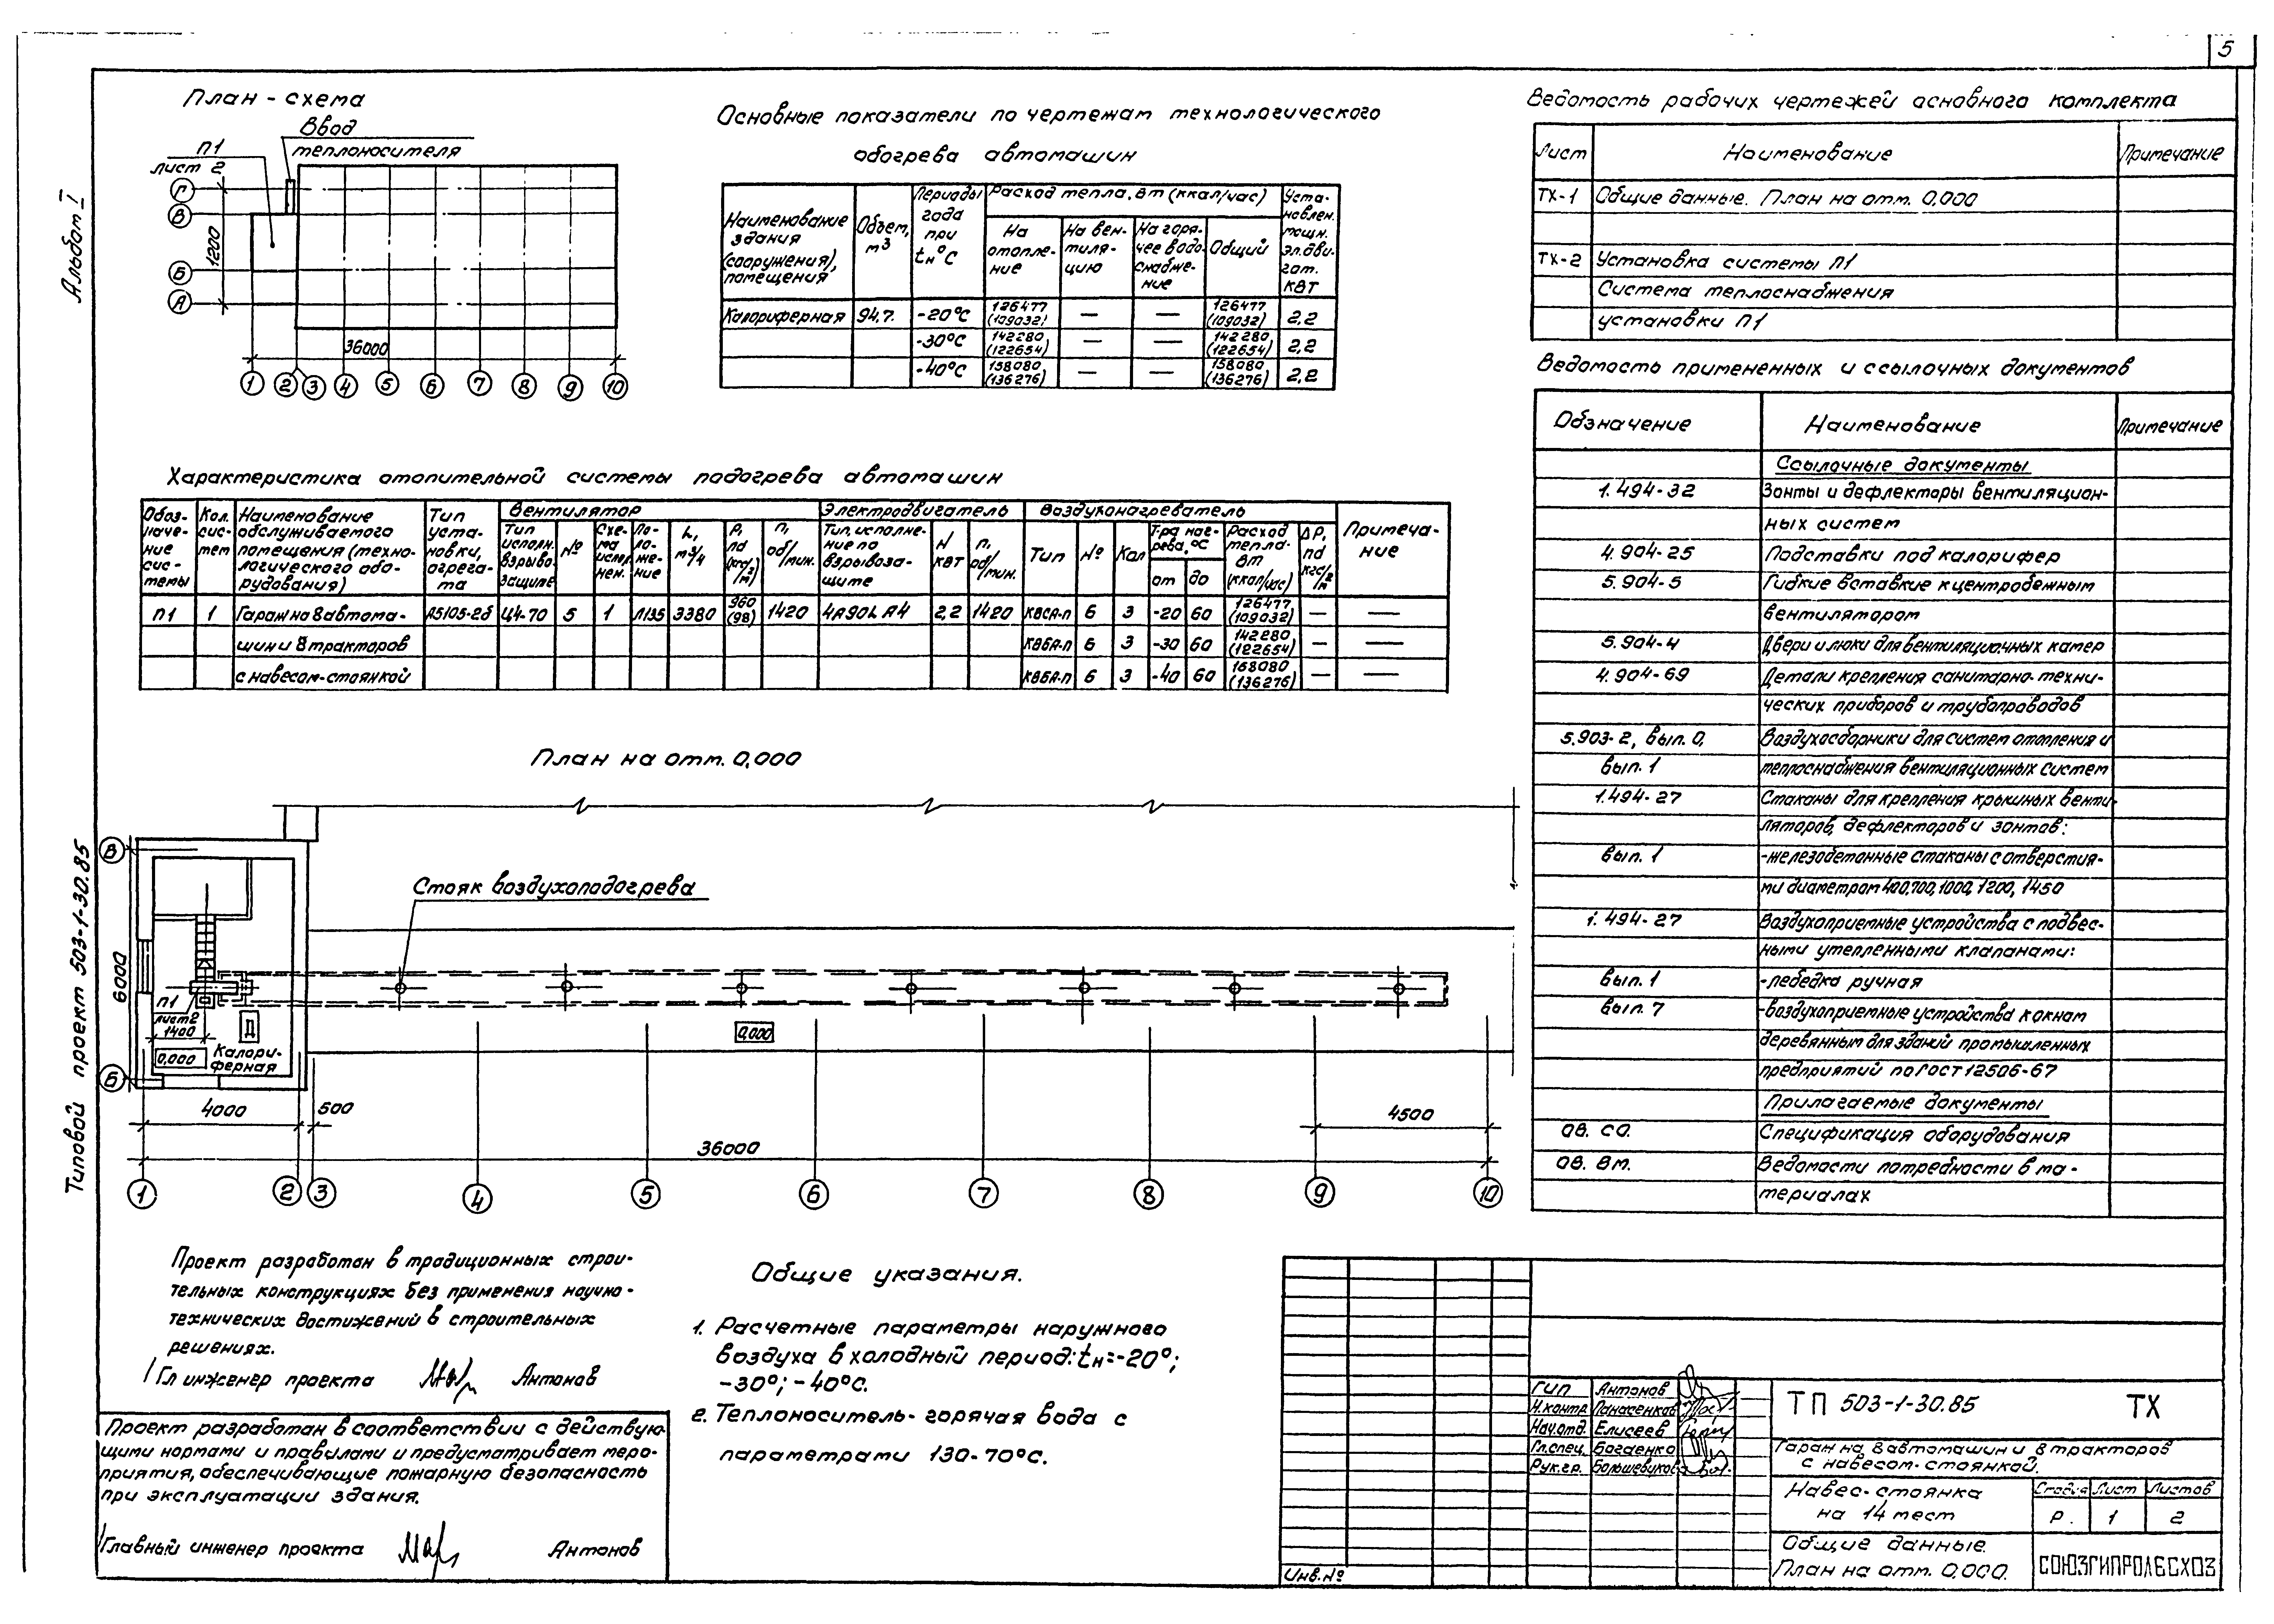 5
Альбом I
Типовой проект 503-1-30.85
План - схема
Ввод
теплоносителя
П1
лист 2
Г
В
Б
А
1200
36000
1 2 3 4 5 6 7 8 9 10
Основные показатели по чертежам технологического
обогрева автомашин
Наименование здания (сооружения), помещения
Объем, м3
Периоды года при tн°С
Расход тепла, вт (ккал/час)
На отопле-ние
На вен-тиля-цию
На горя-чее водо-снабже-ние
Общий
Уста-новлен. мощн. эл.дви-гат. квт
Калориферная 94,7. -20°С 126477 (109032) — — 126477 (109032) 2,2
-30°С 142280 (122654) — — 142280 (122654) 2,2
-40°С 158080 (136276) — — 158080 (136276) 2,2
Характеристика отопительной системы подогрева автомашин
Обоз-наче-ние сис-темы
Кол. сис-тем
Наименование обслуживаемого помещения (техно-логического обо-рудования)
Тип уста-новки, агрега-та
Вентилятор
Тип исполн. взрыво защище
№
Схе-ма испл. нен.
По-ло-же-ние
L, м3/ч
Р, па (кгс/м2)
п, об/мин.
Электродвигатель
Тип, исполне-ние по взрывоза-щите
N квт
п, об/мин.
Воздухонагреватель
Тип
№
Кол
Т-ра наг-рева, °С
от
до
Расход тепла. Вт (ккал/час)
ΔР, па кгс/м2
Примеча-ние
П1 1 Гараж на 8 автома- А5105-2б Ц4-70 5 1 Л135 3380 960 (98) 1420 4А90L А4 2,2 1420 КВСА-п 6 3 -20 60 126477 (109032) — —
шин и 8 тракторов КВБА-п 6 3 -30 60 142280 (122654) — —
с навесом-стоянкой КВБА-п 6 3 -40 60 168080 (136276) — —
План на отм. 0,000
Стояк воздухоподогрева
В
Б
6000
П1
лист 2
1400
0,000
Д
Калори-
ферная
0,000
4000
500
4500
36000
1 2 3 4 5 6 7 8 9 10
Ведомость рабочих чертежей основного комплекта
Лист Наименование Примечание
ТХ-1 Общие данные. План на отм. 0,000
ТХ-2 Установка системы П1
Система теплоснабжения
установки П1
Ведомость примененных и ссылочных документов
Обзначение Наименование Примечание
Ссылочные документы
1.494-32 Зонты и дефлекторы вентиляцион-
ных систем
4.904-25 Подставки под калорифер
5.904-5 Гибкие вставкие к центробежным
вентиляторам
5.904-4 Двери и люки для вентиляционных камер
4.904-69 Детали крепления санитарно-техни-
ческих приборов и трубопроводов
5.903-2, вып. 0, Воздухосборники для систем отопления и
вып. 1 теплоснабжения вентиляционных систем
1.494-27 Стаканы для крепления крышных венти-
ляторов, дефлекторов и зонтов:
вып. 1 -железобетонные стаканы с отверстия-
ми диаметром 400,700,1000,1200,1450
1. 494-27 Воздухоприемные устройства с подвес-
ными утепленными клапанами:
вып. 1 -лебедка ручная
вып. 7 -воздухоприемные устройства к окнам
деревянным для зданий промышленных
предприятий по ГОСТ 12506-67
Прилагаемые документы
ОВ. СО. Спецификация оборудования
ОВ. ВМ. Ведомости потребности в ма-
териалах
Проект разработан в традиционных строи-
тельных конструкциях без применения научно-
технических достижений в строительных
решениях.
Гл инженер проекта Антонов
Проект разработан в соответствии с действую-
щими нормами и правилами и предусматривает меро-
приятия, обеспечивающие пожарную безопасность
при эксплуатации здания.
Главный инженер проекта Антонов
Общие указания.
1. Расчетные параметры наружного
воздуха в холодный период: tн=-20°;
-30°; -40°С.
2. Теплоноситель-горячая вода с
параметрами 130-70°С.
Инв.№
ГИП Антонов
Н.контр Панасенков
Нач.отд. Елисеев
Гл.спец. Богаенко
Рук.гр. Большевиков
ТП 503-1-30.85 ТХ
Гараж на 8 автомашин и 8 тракторов
с навесом-стоянкой.
Навес-стоянка
на 14 мест
Стадия Лист Листов
Р. 1 2
Общие данные.
План на отм. 0,000.
СОЮЗГИПРОЛЕСХОЗ